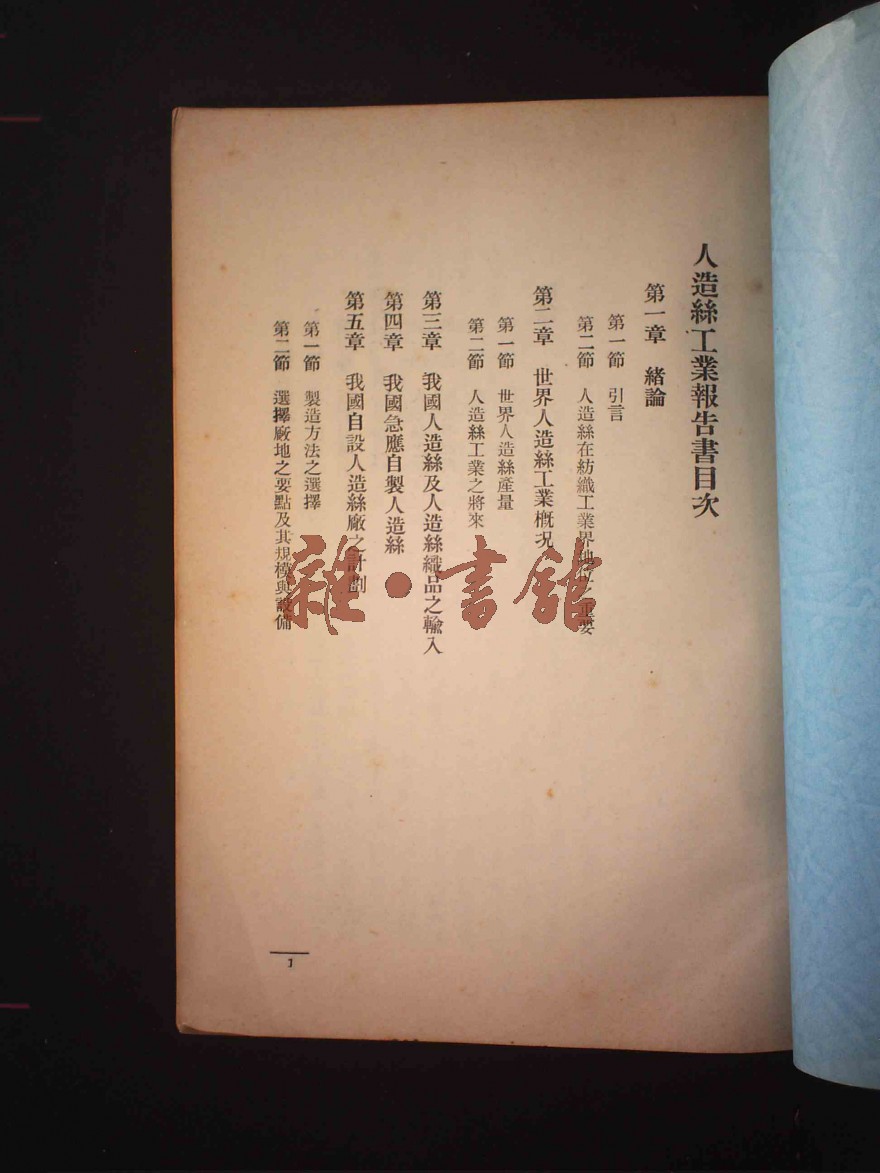 人造絲工業報告書目次
第一章 緒論
第一節 引言
第二節 人造絲在紡織工業界地位之重要
第二章 世界人造絲工業概况
第一節 世界人造絲產量
第二節 人造絲工業之將來
第三章 我國人造絲及人造絲織品之輸入
第四章 我國急應自製人造絲
第五章 我國自設人造絲廠之計劃
第一節 製造方法之選擇
第二節 選擇廠地之要點及其規模與設備
1
雜·書館